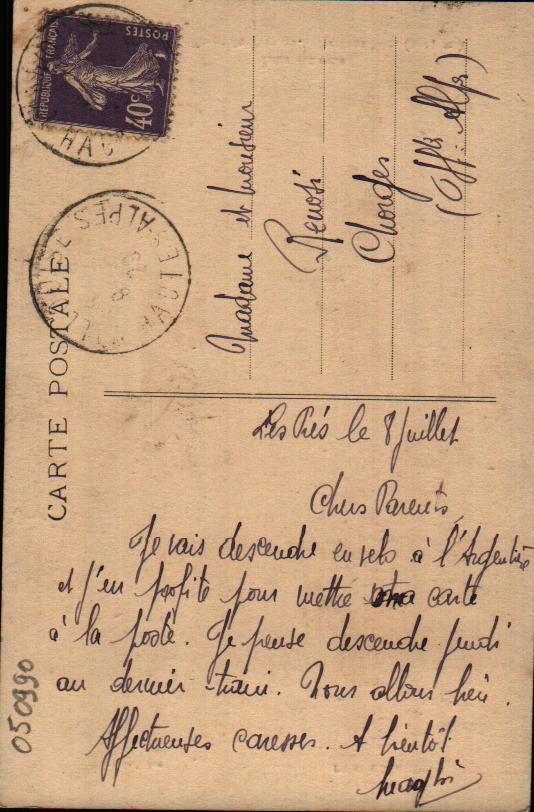 CARTE POSTALE
REPUBLIQUE FRANÇAISE
POSTES
40c
HAUTES-ALPES
Madame et Monsieur
Chorges
(Htes Alpes)
Les Prés le 8 Juillet
Chers Parents
Je vais descendre en velo à l'Argentière
et j'en profite pour mettre carte
à la poste. Je pense descendre jeudi
au dernier train. Nous allons bien.
Affectueuses caresses. A bientôt
050990